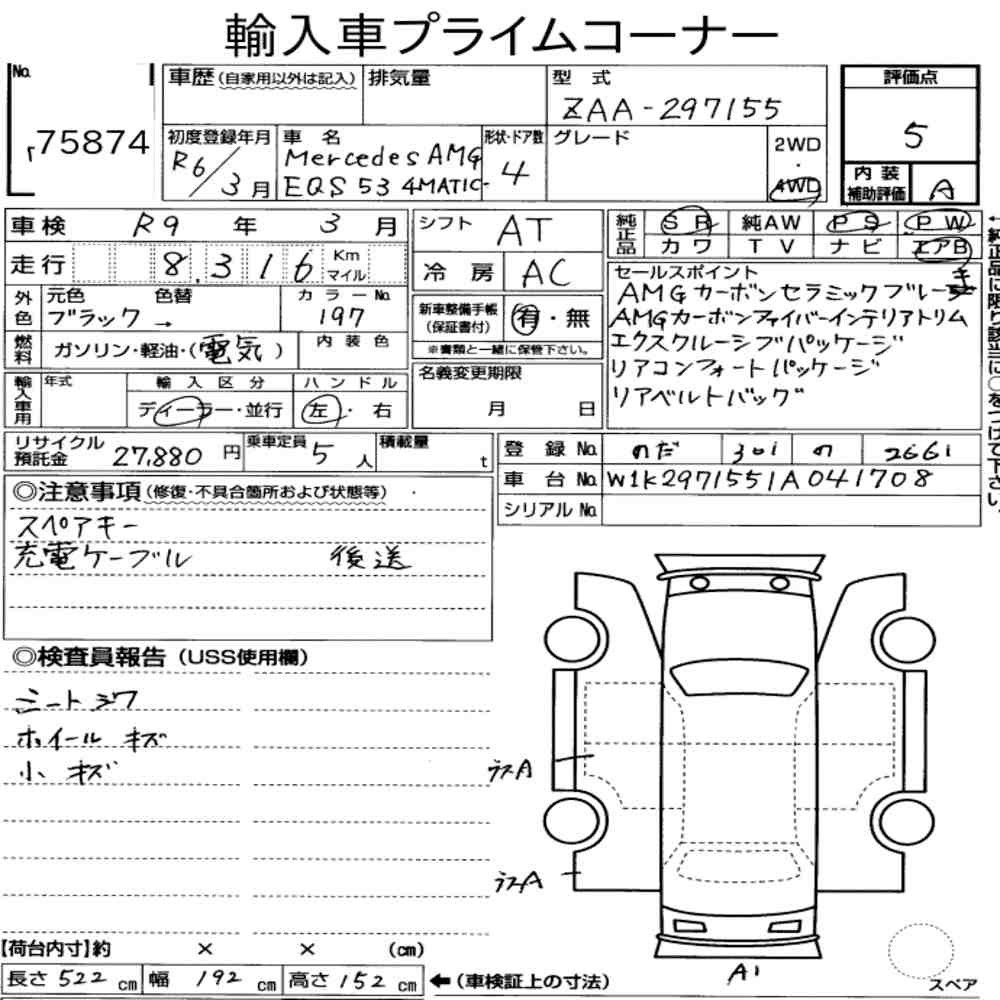 輸入車プライムコーナー
No. 75874
車歴 (自家用以外は記入) 排気量 型式 ZAA-297155
初度登録年月 R6/3月 車名 Mercedes AMG EQS 53 4MATIC- 形状・ドア数 4 グレード 2WD・4WD
評価点 5
内装補助評価 A
車検 R9年 3月
走行 8,316 Km マイル
外色 元色 ブラック → 色替 カラーNo. 197
燃料 ガソリン・軽油・(電気) 内装色
輸入車用 年式 輸入区分 ディーラー・並行 ハンドル 左・右
シフト AT
冷房 AC
新車整備手帳 (保証書付) 有・無
※書類と一緒に保管下さい。
名義変更期限 月 日
純正品 SR 純AW PS PW
カワ TV ナビ エアB
←純正品に限り該当に○をつけて下さい。
セールスポイント
AMGカーボンセラミックブレーキ
AMGカーボンファイバーインテリアトリム
エクスクルーシブパッケージ
リアコンフォートパッケージ
リアベルトバッグ
リサイクル預託金 27,880円 乗車定員 5人 積載量 t
登録No. のだ 301 の 2661
車台No. W1K2971551A041708
シリアルNo.
◎注意事項 (修復・不具合箇所および状態等)
スペアキー
充電ケーブル 後送
◎検査員報告 (USS使用欄)
シートシワ
ホイールキズ
小キズ
ラスA
ラスA
A1
スペア
【荷台内寸】約 × × (cm)
長さ 522 cm 幅 192 cm 高さ 152 cm ←(車検証上の寸法)